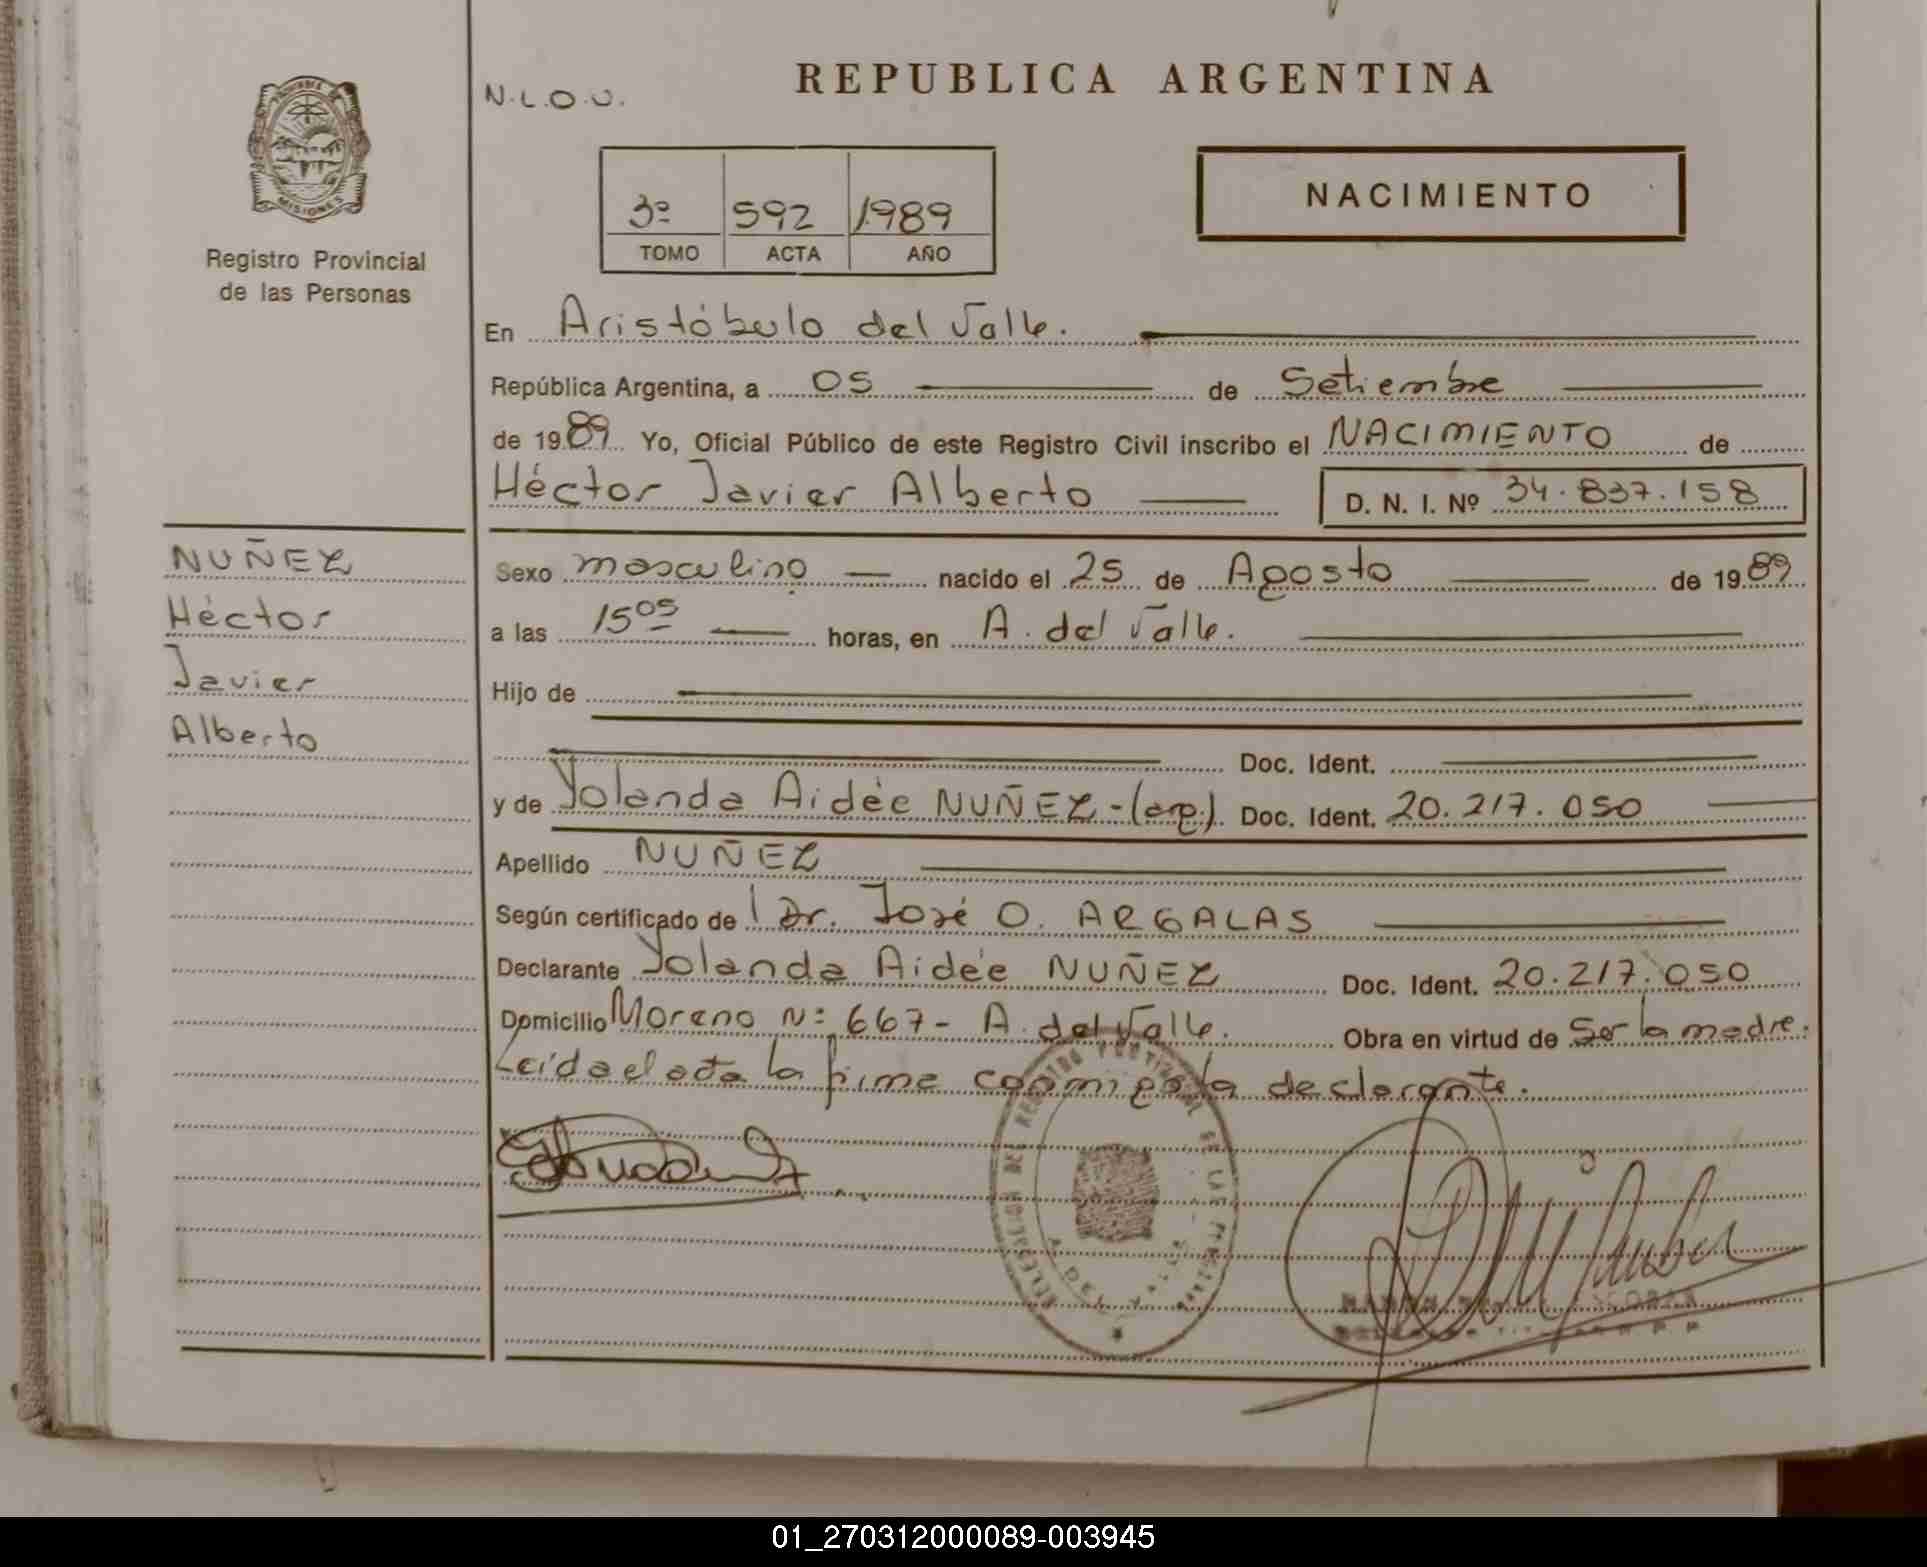 REPUBLICA ARGENTINA
N.L.O.U.
NACIMIENTO
3º 592 1989
TOMO ACTA AÑO
MISIONES
Registro Provincial
de las Personas
En Aristóbulo del Valle.
República Argentina, a 05 de Setiembre
de 1989 Yo, Oficial Público de este Registro Civil inscribo el NACIMIENTO de
Héctor Javier Alberto D. N. I. Nº 34.837.158
NUÑEZ
Héctor
Javier
Alberto
Sexo masculino nacido el 25 de Agosto de 1989
a las 15 05 horas, en A. del Valle.
Hijo de
Doc. Ident.
y de Yolanda Aidée NUÑEZ-(arg.) Doc. Ident. 20.217.050
Apellido NUÑEZ
Según certificado de Dr. José O. ARGALAS
Declarante Yolanda Aidée NUÑEZ Doc. Ident. 20.217.050
Domicilio Moreno Nº 667- A. del Valle. Obra en virtud de Ser la madre.
Leída el acta la firma conmigo la declarante.
01_270312000089-003945